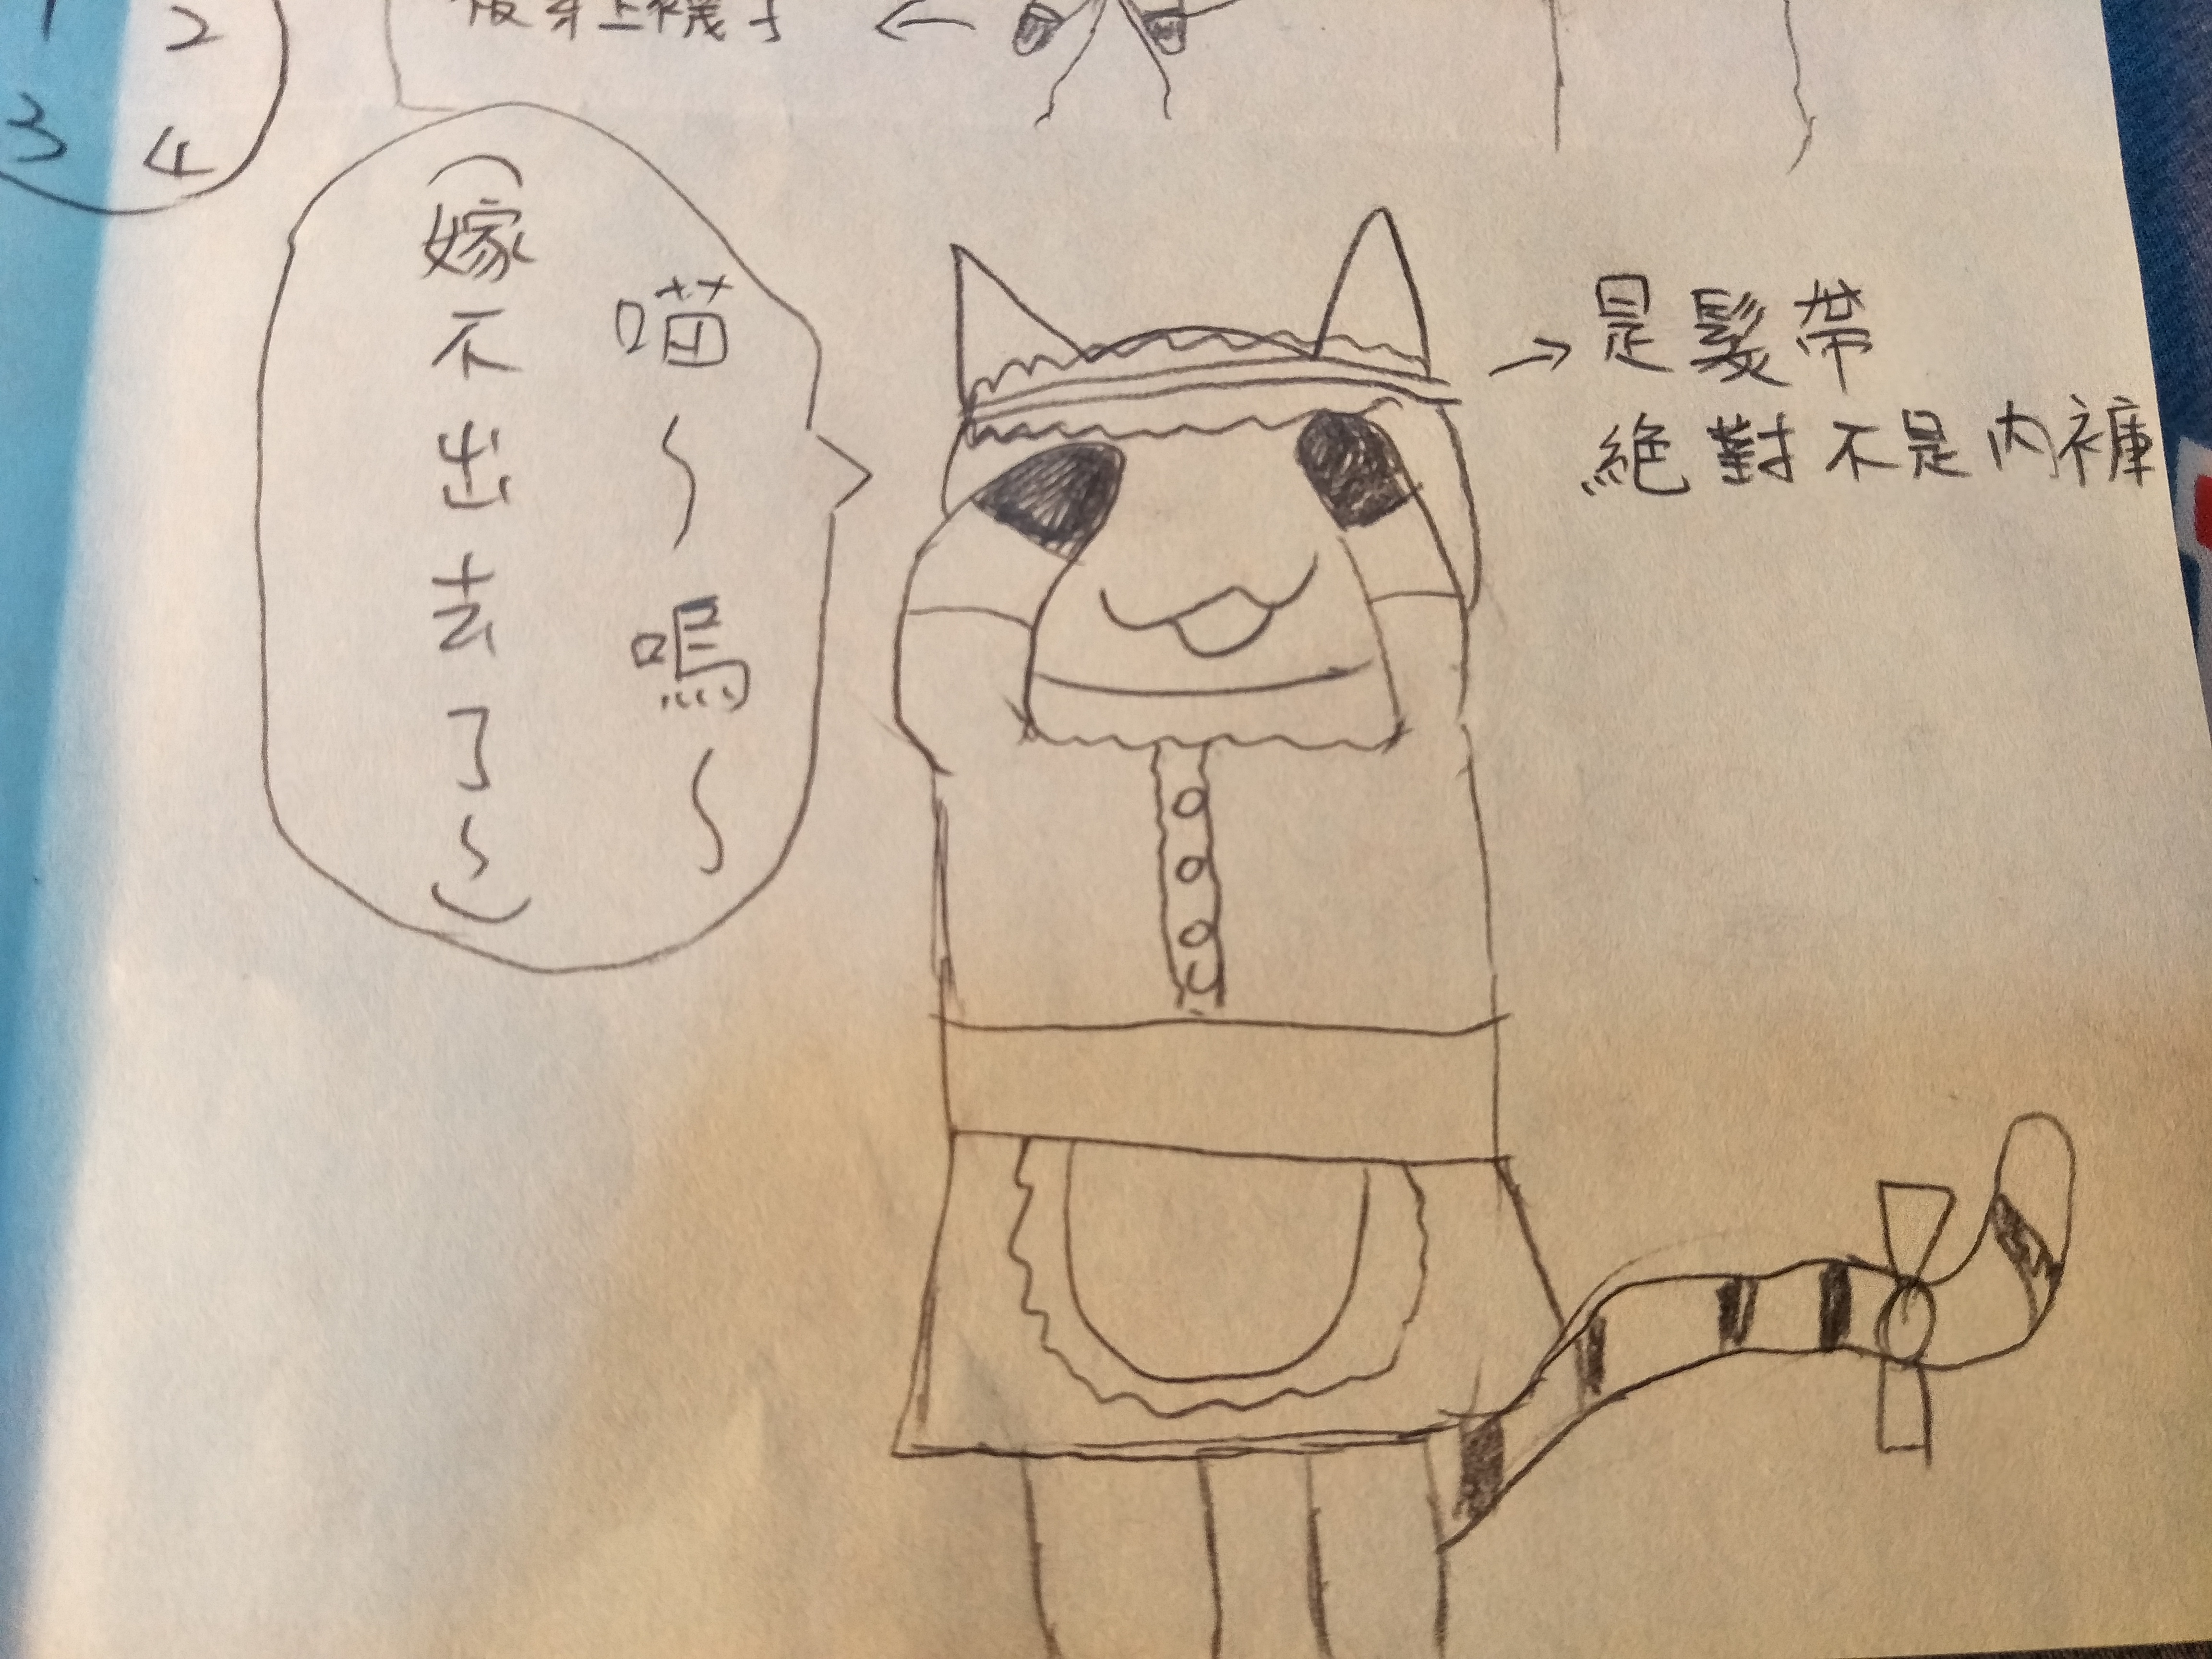 1 2
3 4
被穿上襪子
喵～嗚～
（嫁不出去了～）
是髮帶
絕對不是內褲